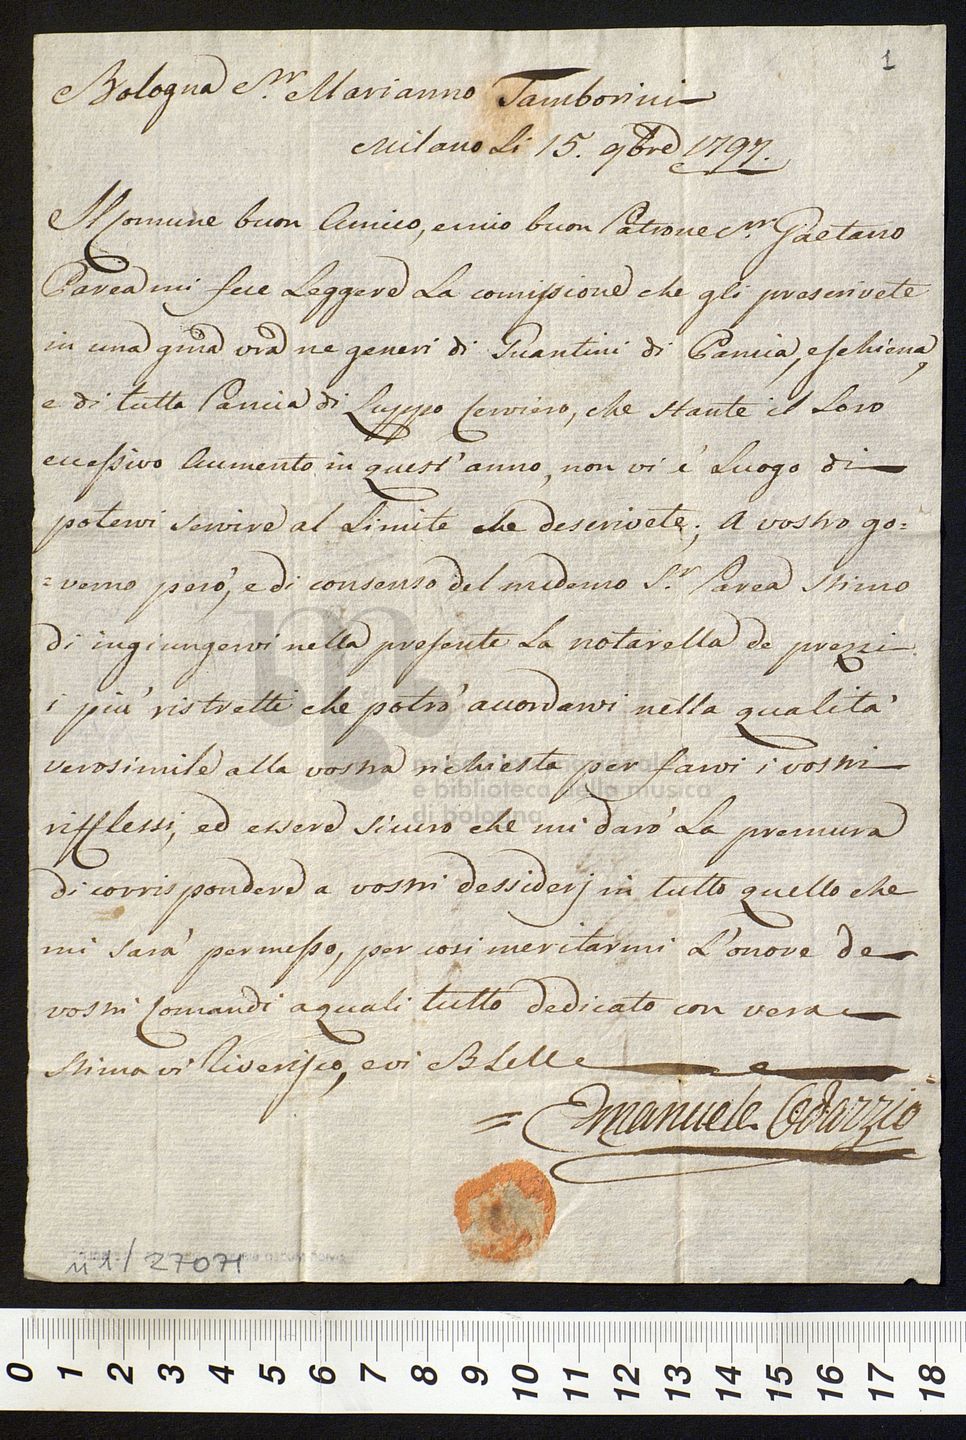 1
Bologna Sr. Marianno Tamborini
Milano Li 15. 9bre 1797.
Il Comune buon Amico, e mio buon Patrone Sr. Gaetano
Pavea mi fece Leggere La comissione che gli prescrivete
in una gma vra ne generi di Guantini di Pancia, e schiena,
e di tutta Pancia di Luppo Cerviero, che stante il Loro
eccessivo Aumento in quest' anno, non vi é Luogo di
potervi servire al Limite che descrivete; A vostro go=
=verno però, e di consenso del medemo Sr. Pavea stimo
di ingiungervi nella presente La notarella de prezzi
i più ristretti che potrò accordarvi nella qualità
verosimile alla vostra richiesta per farvi i vostri
rifflessi, ed essere sicuro che mi darò La premura
di corrispondere a vostri dessiderj in tutto quello che
mi sarà permesso, per cosi meritarmi L'onore de
vostri Comandi a quali tutto dedicato con vera
stima vi Riverisco, e vi B Lelle
= Emanuele Odazzio
museo internazionale
e biblioteca della musica
di bologna
n 1/27071
0 1 2 3 4 5 6 7 8 9 10 11 12 13 14 15 16 17 18